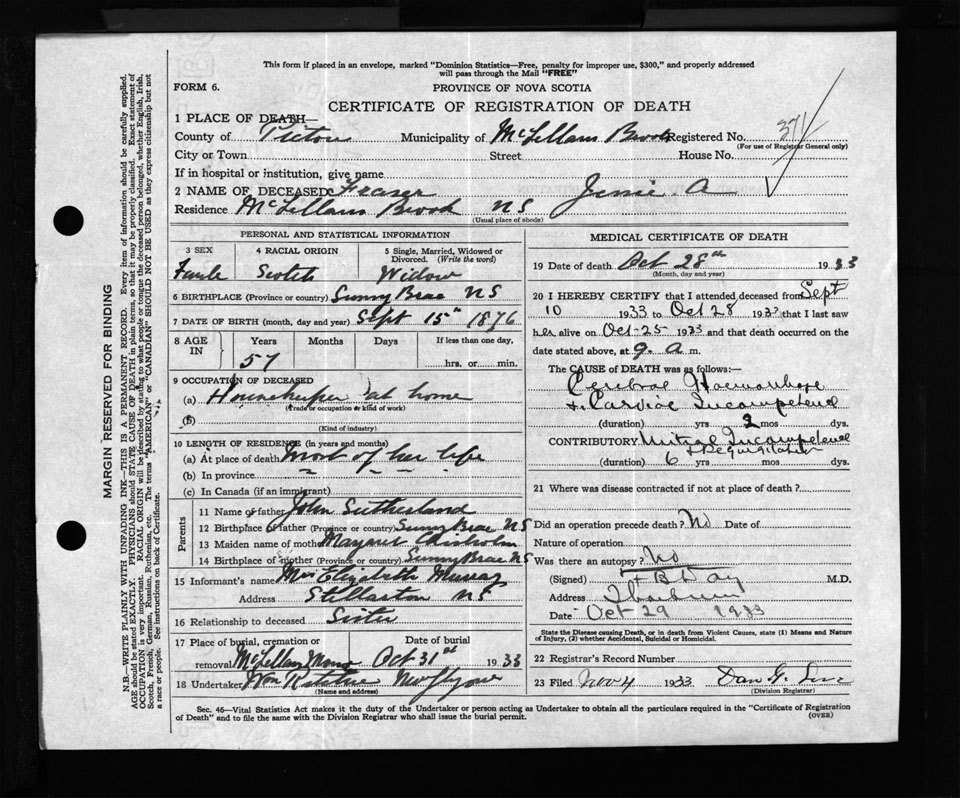 This form if placed in an envelope, marked "Dominion Statistics—Free, penalty for improper use, $300," and properly addressed
will pass through the Mail "FREE"
FORM 6.
PROVINCE OF NOVA SCOTIA
CERTIFICATE OF REGISTRATION OF DEATH
1 PLACE OF DEATH—
County of Pictou Municipality of McLellans Brook Registered No. 371
(For use of Registrar General only)
City or Town Street House No.
If in hospital or institution, give name
2 NAME OF DECEASED Fraser Jessie A
Residence McLellans Brook NS
(Usual place of abode)
PERSONAL AND STATISTICAL INFORMATION
3 SEX 4 RACIAL ORIGIN 5 Single, Married, Widowed or
Divorced. (Write the word)
Female Scotch Widow
6 BIRTHPLACE (Province or country) Sunny Brae NS
7 DATE OF BIRTH (month, day and year) Sept 15th 1876
8 AGE IN Years Months Days If less than one day,
57 hrs. or min.
9 OCCUPATION OF DECEASED
(a) Housekeeper at home
(Trade or occupation or kind of work)
(b)
(Kind of industry)
10 LENGTH OF RESIDENCE (in years and months)
(a) At place of death Most of her life
(b) In province
(c) In Canada (if an immigrant)
Parents
11 Name of father John Sutherland
12 Birthplace of father (Province or country) Sunny Brae NS
13 Maiden name of mother Margaret Chisholm
14 Birthplace of mother (Province or country) Sunny Brae NS
15 Informant's name Mrs Elizabeth Murray
Address Stellarton NS
16 Relationship to deceased Sister
17 Place of burial, cremation or Date of burial
removal McLellans Oct 31st 1933
18 Undertaker Wm
(Name and address)
MEDICAL CERTIFICATE OF DEATH
19 Date of death Oct 28th 1933
(Month, day and year)
20 I HEREBY CERTIFY that I attended deceased from Sept
10 1933 to Oct 28 1933 that I last saw
her alive on Oct-25 1933 and that death occurred on
date stated above, at 9. a m.
The CAUSE OF DEATH was as follows:—
Cerebral Haemorrhage
+ Cardiac Incompetence
(duration) yrs 2 mos dys.
CONTRIBUTORY Mitral Incompetence
+ Regurgitation
(duration) 6 yrs mos dys.
21 Where was disease contracted if not at place of death?
Did an operation precede death? No Date of
Nature of operation
Was there an autopsy? No
(Signed) F B Day M.D.
Address Thorburn
Date Oct 29 1933
State the Disease causing Death, or in death from Violent Causes, state (1) Means and Nature
of Injury, (2) whether Accidental, Suicidal or Homicidal.
22 Registrar's Record Number
23 Filed Nov 4 1933 Dan G.
(Division Registrar)
Sec. 46—Vital Statistics Act makes it the duty of the Undertaker or person acting as Undertaker to obtain all the particulars required in the "Certificate of Registration
of Death" and to file the same with the Division Registrar who shall issue the burial permit.
(OVER)
MARGIN RESERVED FOR BINDING
N.B.—WRITE PLAINLY WITH UNFADING INK—THIS IS A PERMANENT RECORD. Every item of information should be carefully supplied.
AGE should be stated EXACTLY. PHYSICIANS should STATE CAUSE OF DEATH in plain terms, so that it may be properly classified. Exact statement of
OCCUPATION is very important. RACIAL ORIGIN will be described by stating to what people or tongue the deceased person belonged, whether English, Irish,
Scotch, French, German, Russian, Ruthenian, etc. The terms "AMERICAN" or "CANADIAN" SHOULD NOT BE USED as they express citizenship but not
a race or people. See instructions on back of Certificate.